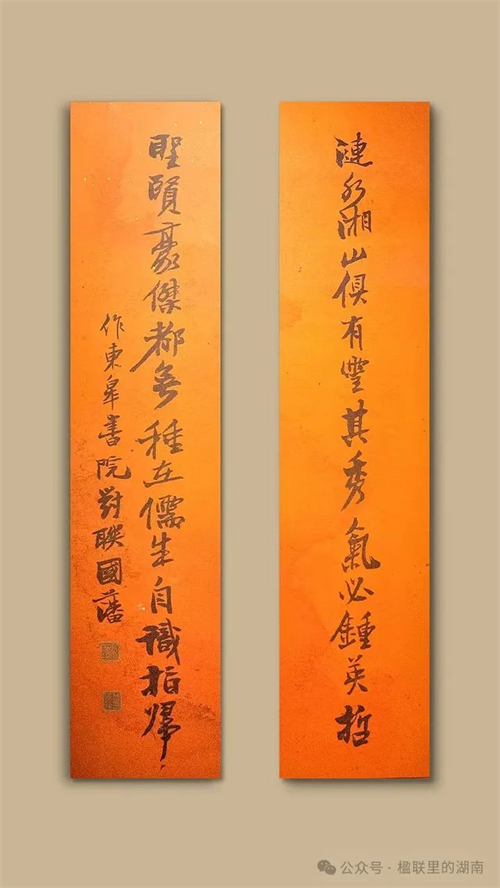 漣水湘山俱有靈其秀氣必鍾英哲
聖賢豪傑都無種在儒生自識指歸
作東皋書院對聯國藩
公众号·楹联里的湖南